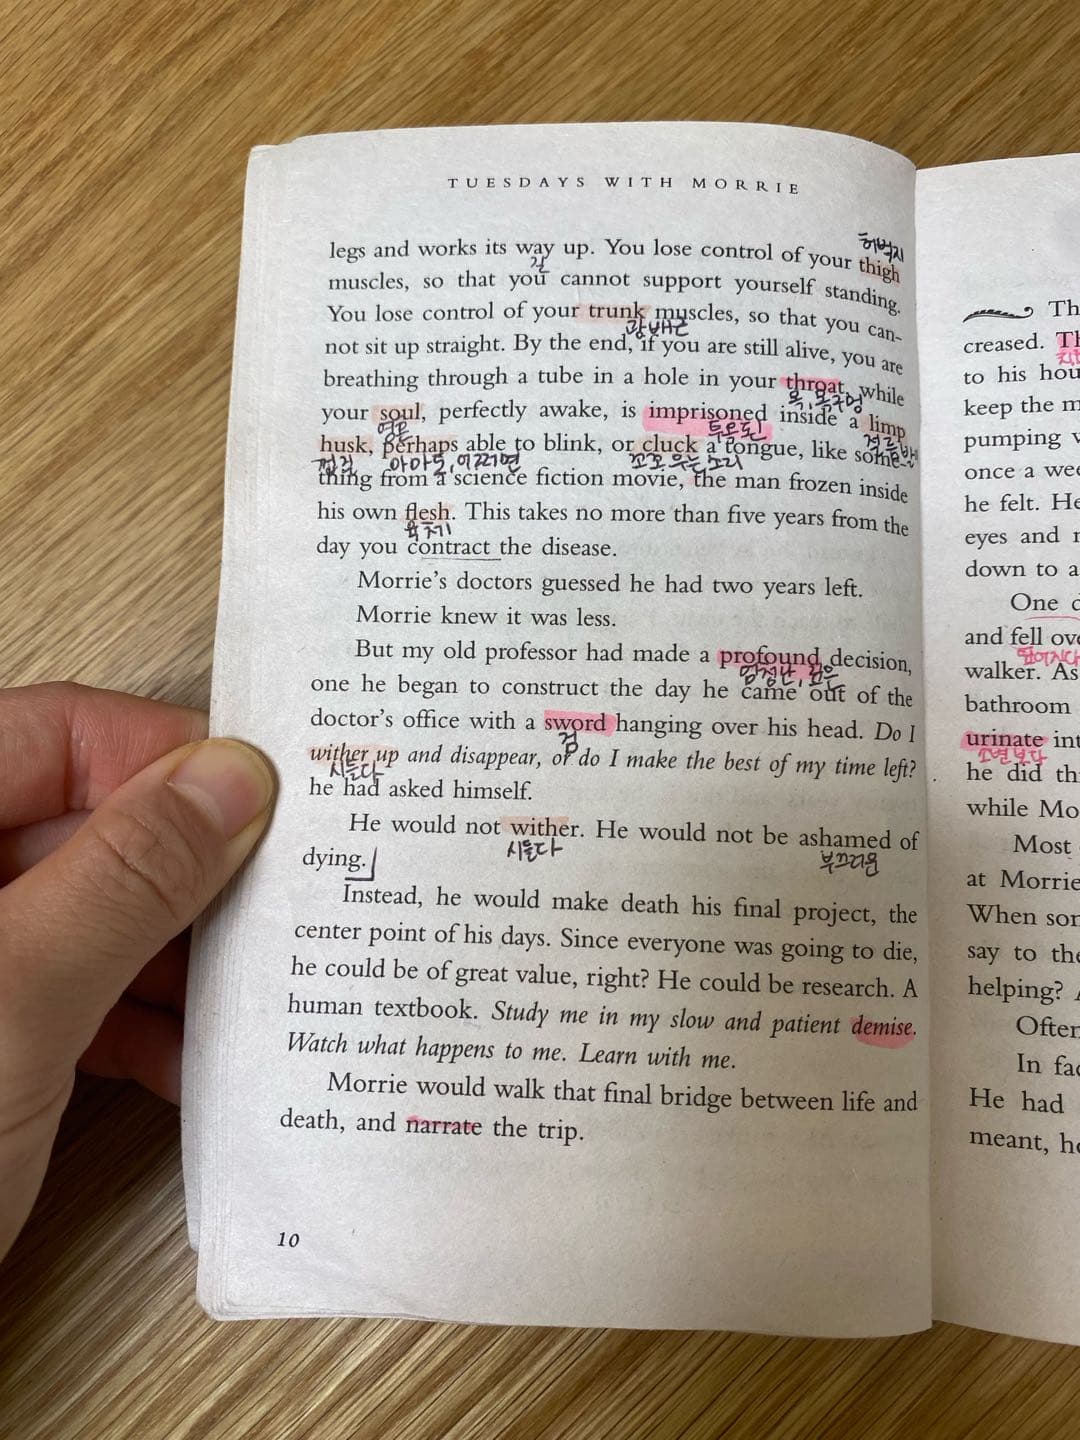 TUESDAYS WITH MORRIE
허벅지
legs and works its way up. You lose control of your thigh
길
muscles, so that you cannot support yourself standing.
You lose control of your trunk muscles, so that you can-
광배근
not sit up straight. By the end, if you are still alive, you are
breathing through a tube in a hole in your throat, while
목, 목구멍
your soul, perfectly awake, is imprisoned inside a limp
영혼 투옥된
husk, perhaps able to blink, or cluck a tongue, like some-
껍질 아마도, 어쩌면 꼬꼬 우는 소리
thing from a science fiction movie, the man frozen inside
his own flesh. This takes no more than five years from the
day you contract the disease.
Morrie's doctors guessed he had two years left.
Morrie knew it was less.
But my old professor had made a profound decision,
엄청난, 깊은
one he began to construct the day he came out of the
doctor's office with a sword hanging over his head. Do I
검
wither up and disappear, or do I make the best of my time left?
시들다
he had asked himself.
He would not wither. He would not be ashamed of
시들다 부끄러운
dying.
Instead, he would make death his final project, the
center point of his days. Since everyone was going to die,
he could be of great value, right? He could be research. A
human textbook. Study me in my slow and patient demise.
Watch what happens to me. Learn with me.
Morrie would walk that final bridge between life and
death, and narrate the trip.
10
Th
creased. Th
to his hou
keep the m
pumping
once a wee
he felt. He
eyes and
down to a
One
and fell ove
walker. As
bathroom
urinate int
소변보다
he did th
while Mo
Most
at Morrie
When son
say to the
helping?
Often
In fac
He had
meant, he